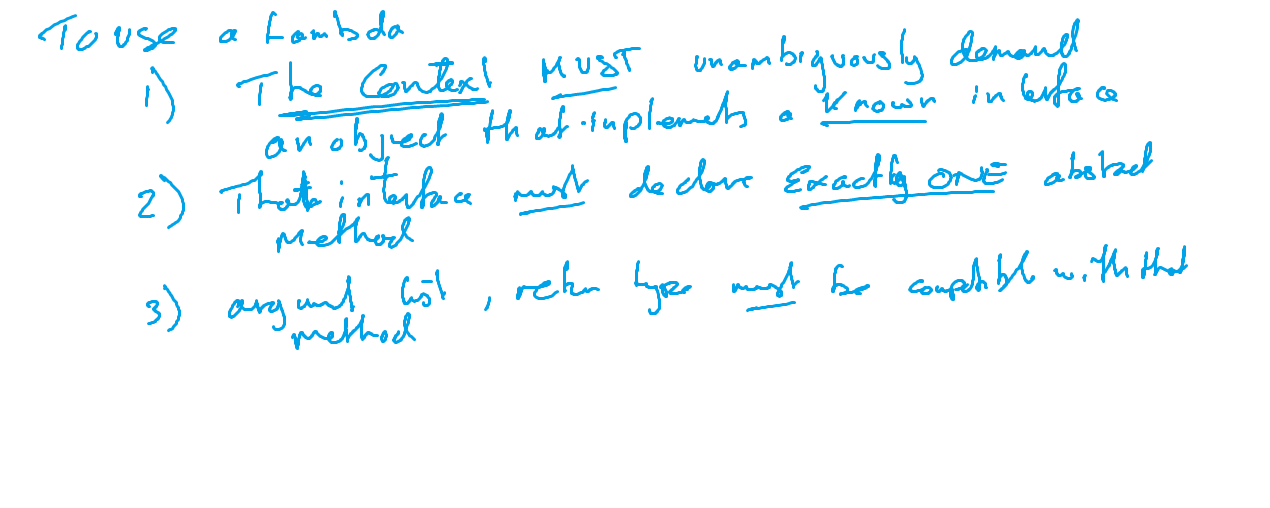 To use a Lambda
1) The Context MUST unambiguously demand
an object that implements a Known interface
2) That interface must declare Exactly ONE abstract
Method
3) argument list, return type must be compatible with that
method